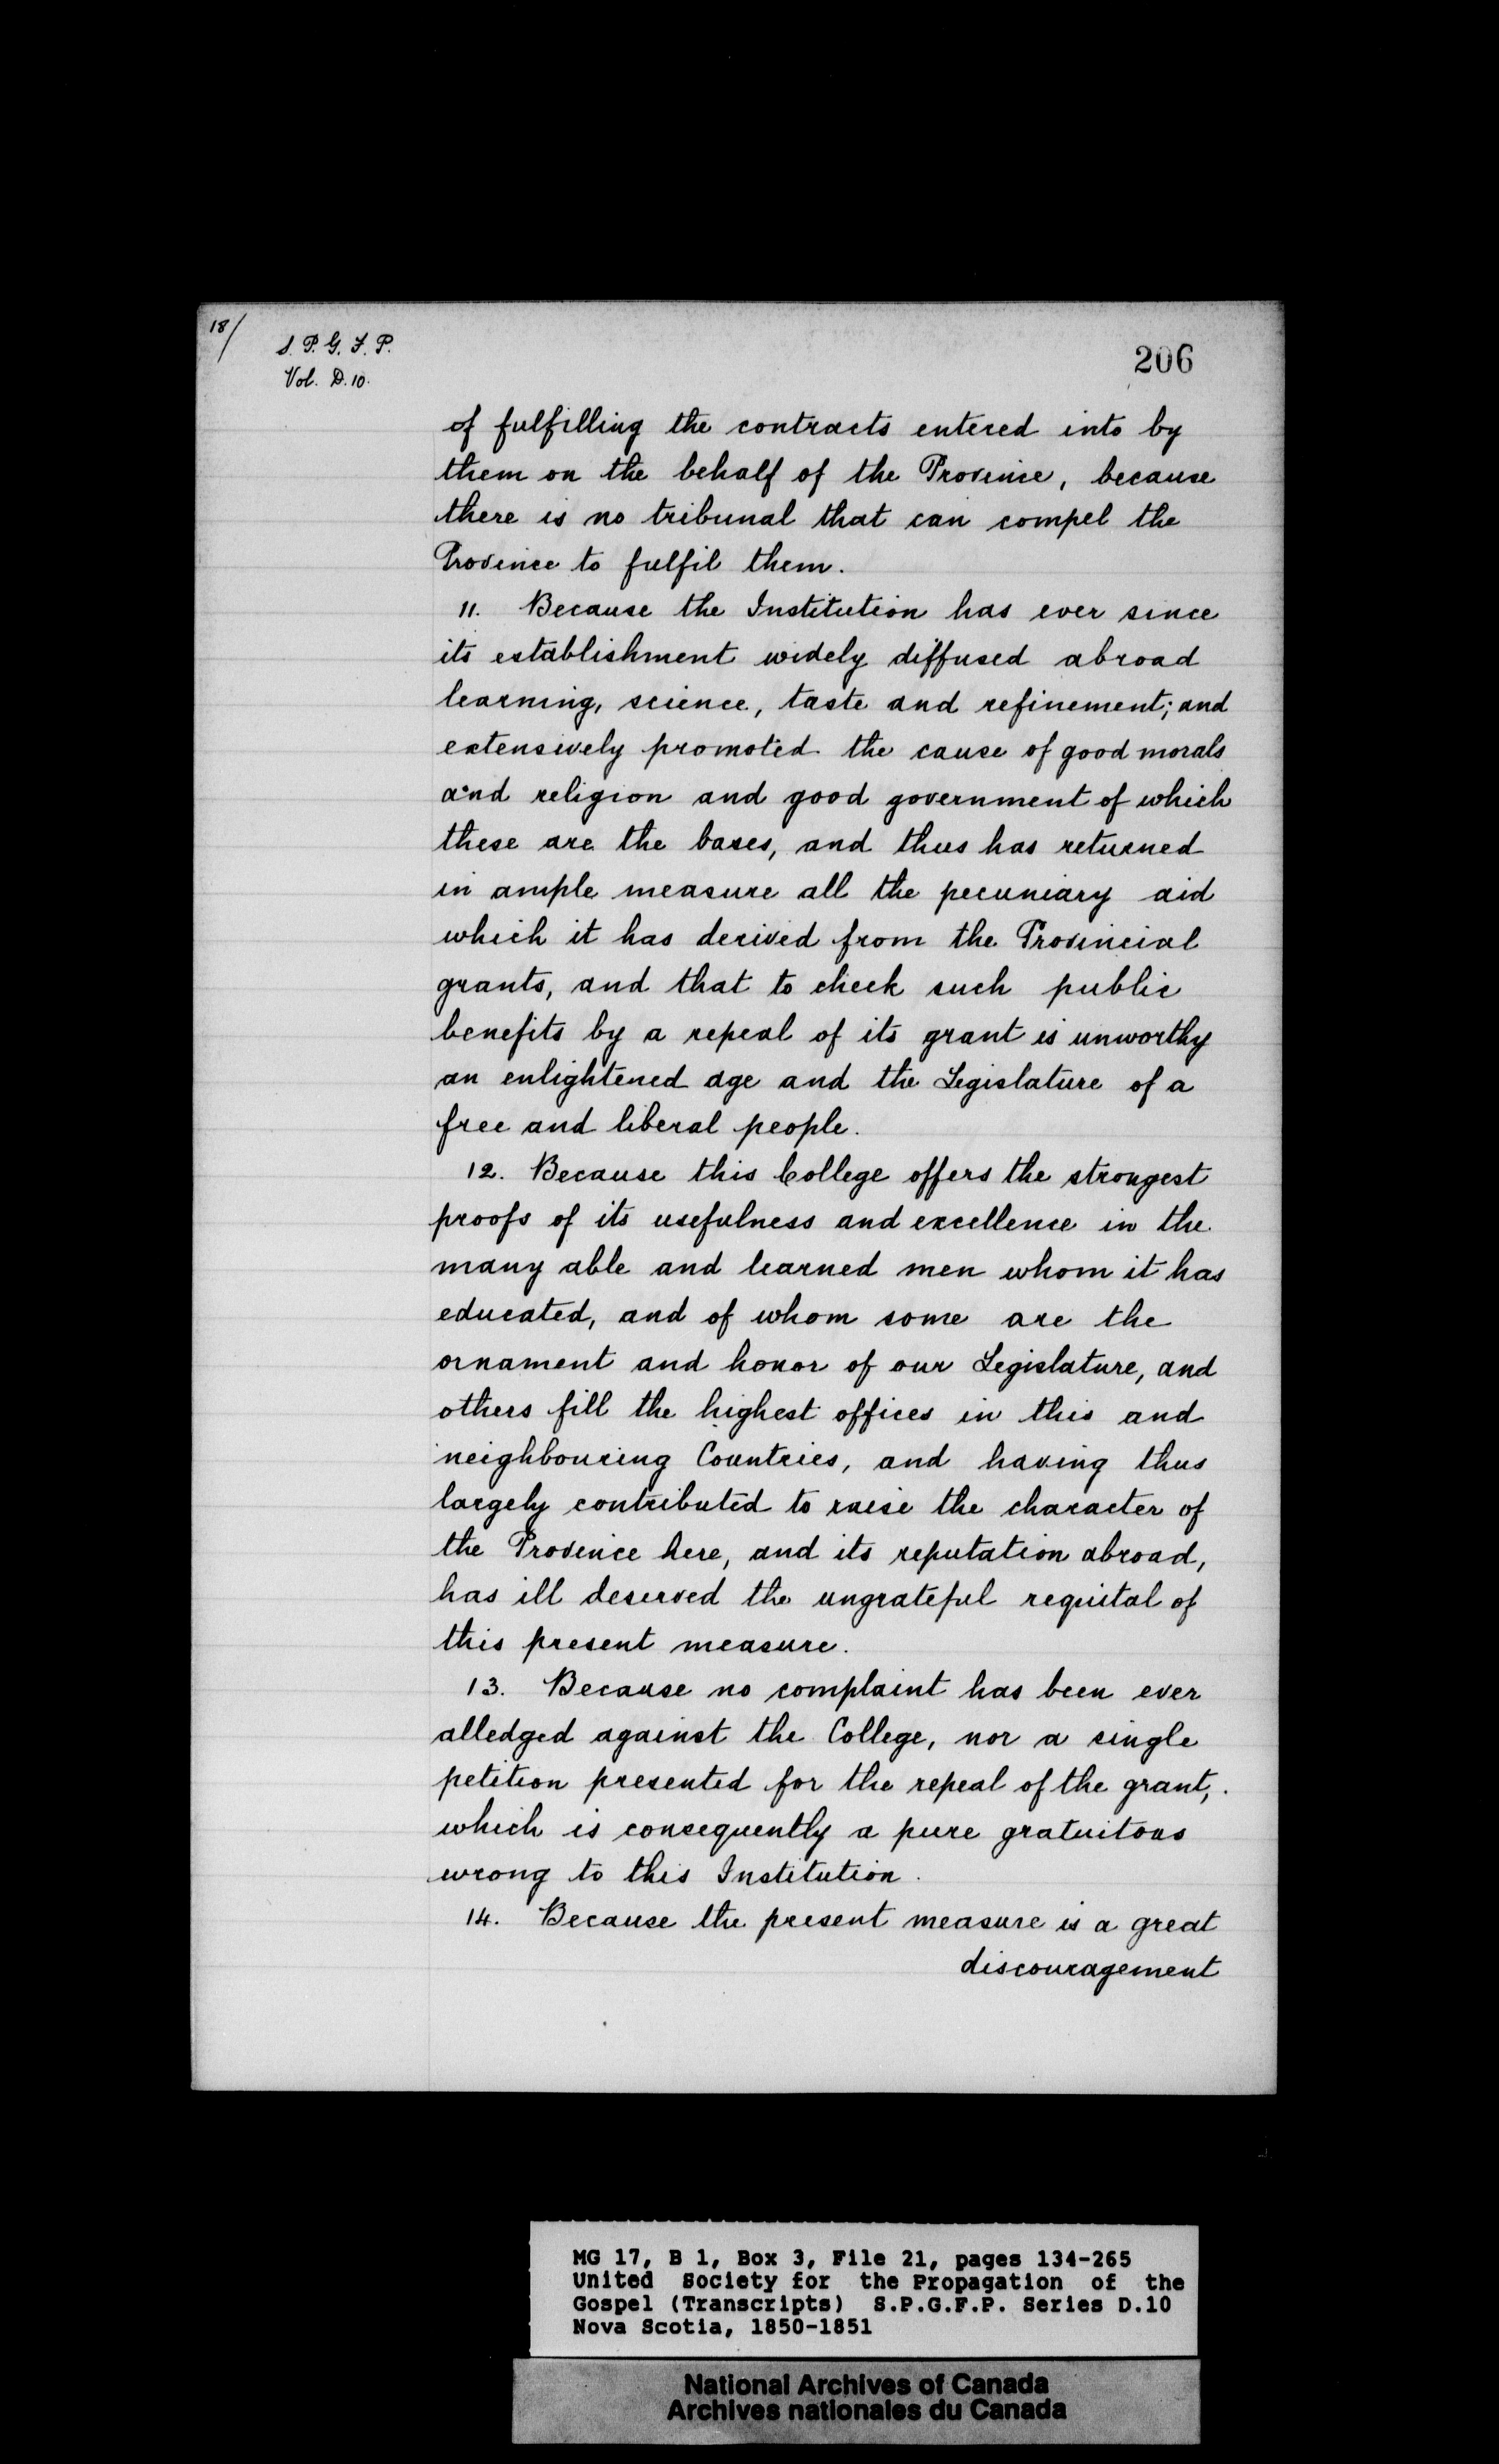 18/
S. P. G. F. P.
Vol. D.10.
206
of fulfilling the contracts entered into by
them on the behalf of the Province, because
there is no tribunal that can compel the
Province to fulfil them.
11. Because the Institution has ever since
its establishment widely diffused abroad
learning, science, taste and refinement; and
extensively promoted the cause of good morals
and religion and good government of which
these are the bases, and thus has returned
in ample measure all the pecuniary aid
which it has derived from the Provincial
grants, and that to check such public
benefits by a repeal of its grant is unworthy
an enlightened age and the Legislature of a
free and liberal people.
12. Because this College offers the strongest
proofs of its usefulness and excellence in the
many able and learned men whom it has
educated, and of whom some are the
ornament and honor of our Legislature, and
others fill the highest offices in this and
neighbouring Countries, and having thus
largely contributed to raise the character of
the Province here, and its reputation abroad,
has ill deserved the ungrateful requital of
this present measure.
13. Because no complaint has been ever
alledged against the College, nor a single
petition presented for the repeal of the grant,
which is consequently a pure gratuitous
wrong to this Institution.
14. Because the present measure is a great
discouragement
MG 17, B 1, Box 3, File 21, pages 134-265
United Society for the Propagation of the
Gospel (Transcripts) S.P.G.F.P. Series D.10
Nova Scotia, 1850-1851
National Archives of Canada
Archives nationales du Canada